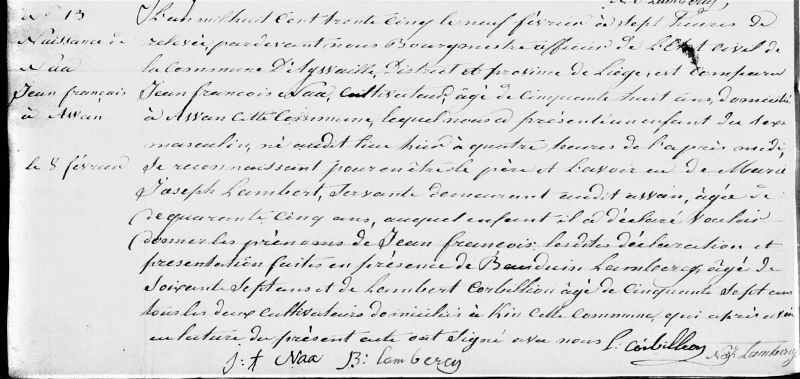 N° 13
Naissance de
Naa
Jean françois
à Awan
le 8 février
L'an mil huit cent trente cinq le neuf février à sept heures de
relevée, pardevant nous Bourgmestre officier de L'Etat civil de
la Commune D'Aywaille, District et province de Liége, est comparu
Jean francois Naa, Cultivateur, âgé de Cinquante huit ans, domicilié
à Awan cette Commune, lequel nous a présenté un enfant du sexe
masculin, né audit lieu hier à quatre heures de l'après midi,
Se reconnaissant pour en être le père et l'avoir eu de Marie
Joseph Lambert, Servante demeurant audit awan, âgée de
de quarante Cinq ans, auquel enfant il a déclaré Vouloir
donner les prénoms de Jean francois. lesdites déclaration et
presentation faites en présence de Bauduin Lambercy, âgé de
Soixante Sept ans et de Lambert Corbillion âgé de Cinquante Sept ans
tous les deux cultivateurs domiciliés à Kin Cette Commune, qui après avoir
eu lecture du présent acte ont Signé avec nous
L: Corbillion
J: f Naa B: lambercy